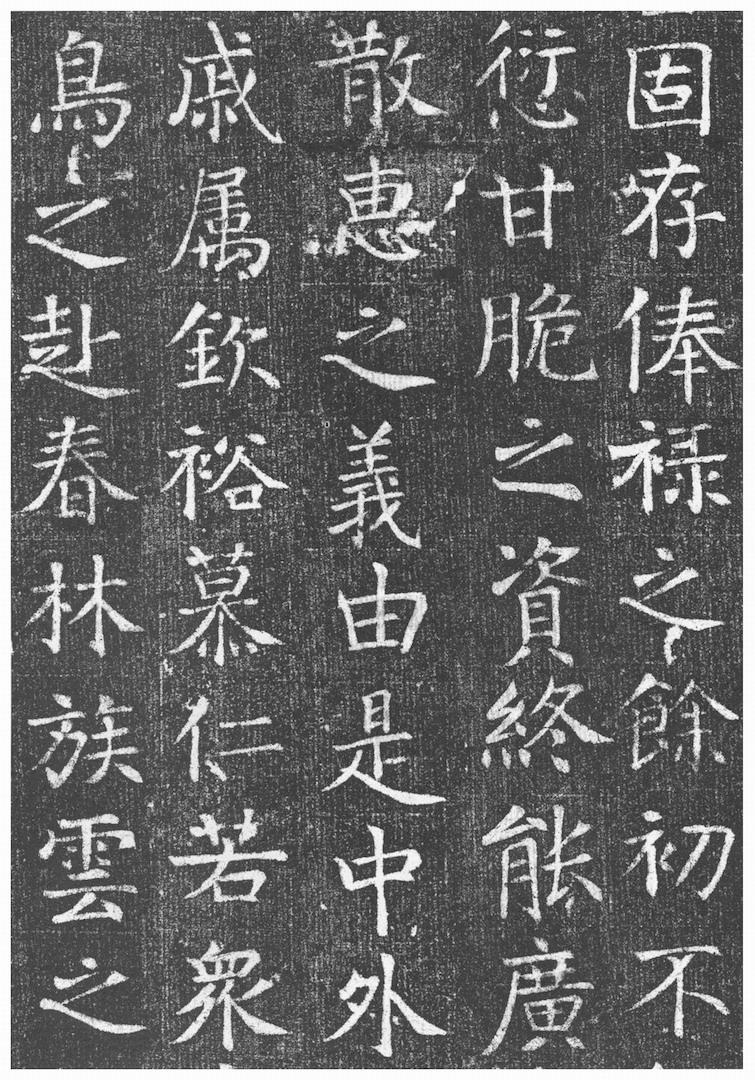 固存俸禄之餘初不
愆甘脆之資終能廣
散惠之義由是中外
戚属欽裕慕仁若衆
鳥之赴春林族雲之